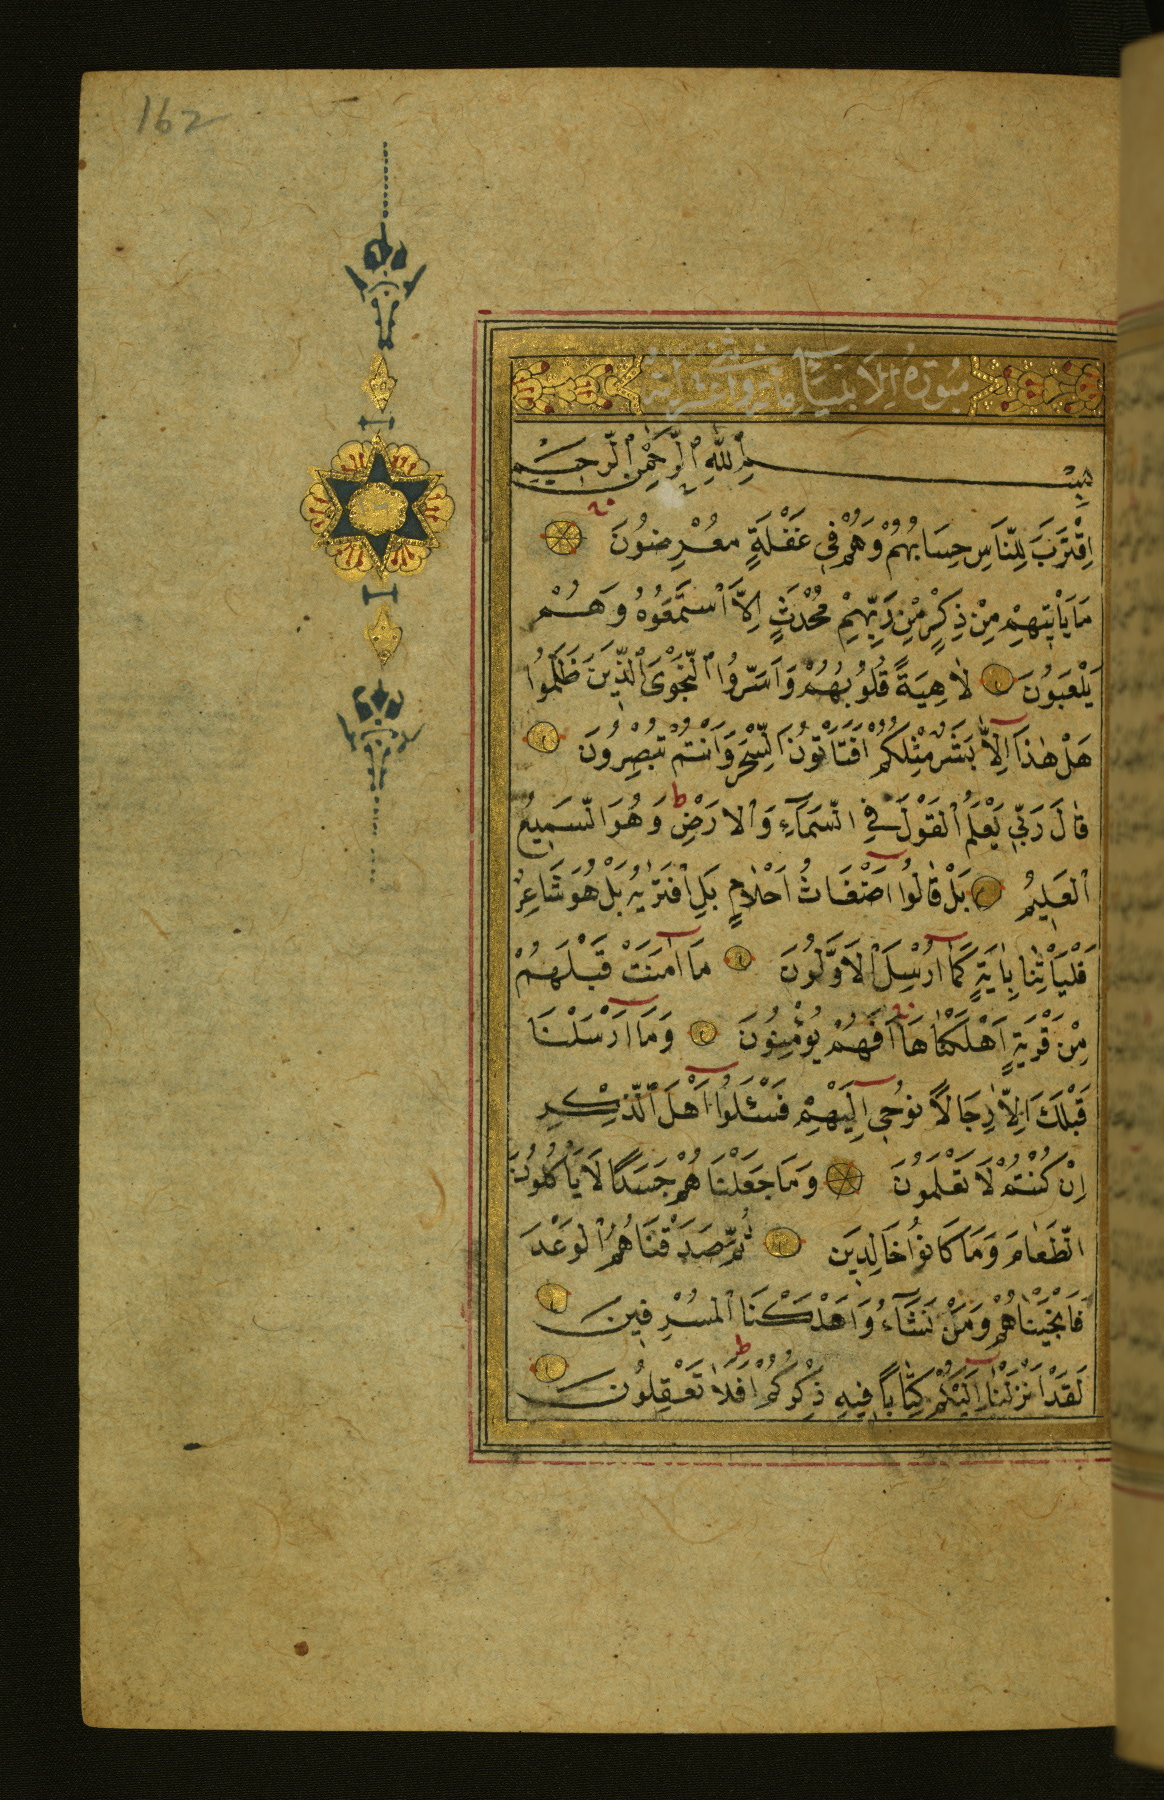 162
سورة الانبياء مائة واثنتي عشر آية
بِسْمِ اللّٰهِ الرَّحْمٰنِ الرَّحِيمِ
اِقْتَرَبَ لِلنَّاسِ حِسَابُهُمْ وَهُمْ فِي غَفْلَةٍ مُعْرِضُونَ
مَا يَأْتِيهِمْ مِنْ ذِكْرٍ مِنْ رَبِّهِمْ مُحْدَثٍ اِلَّا اسْتَمَعُوهُ وَهُمْ
يَلْعَبُونَ لَاهِيَةً قُلُوبُهُمْ وَاَسَرُّوا النَّجْوَى الَّذِينَ ظَلَمُوا
هَلْ هٰذَا اِلَّا بَشَرٌ مِثْلُكُمْ اَفَتَأْتُونَ السِّحْرَ وَاَنْتُمْ تُبْصِرُونَ
قَالَ رَبِّي يَعْلَمُ الْقَوْلَ فِي السَّمَآءِ وَالْاَرْضِ ط وَهُوَ السَّمِيعُ
الْعَلِيمُ بَلْ قَالُوا اَضْغَاثُ اَحْلَامٍ بَلِ افْتَرٰيهُ بَلْ هُوَ شَاعِرٌ
فَلْيَأْتِنَا بِاٰيَةٍ كَمَا اُرْسِلَ الْاَوَّلُونَ مَا اٰمَنَتْ قَبْلَهُمْ
مِنْ قَرْيَةٍ اَهْلَكْنَاهَا اَفَهُمْ يُؤْمِنُونَ وَمَا اَرْسَلْنَا
قَبْلَكَ اِلَّا رِجَالًا نُوحِي اِلَيْهِمْ فَسْـَٔلُوا اَهْلَ الذِّكْرِ
اِنْ كُنْتُمْ لَا تَعْلَمُونَ وَمَا جَعَلْنَاهُمْ جَسَدًا لَا يَأْكُلُونَ
الطَّعَامَ وَمَا كَانُوا خَالِدِينَ ثُمَّ صَدَقْنَاهُمُ الْوَعْدَ
فَاَنْجَيْنَاهُمْ وَمَنْ نَشَآءُ وَاَهْلَكْنَا الْمُسْرِفِينَ
لَقَدْ اَنْزَلْنَا اِلَيْكُمْ كِتَابًا فِيهِ ذِكْرُكُمْ ط اَفَلَا تَعْقِلُونَ